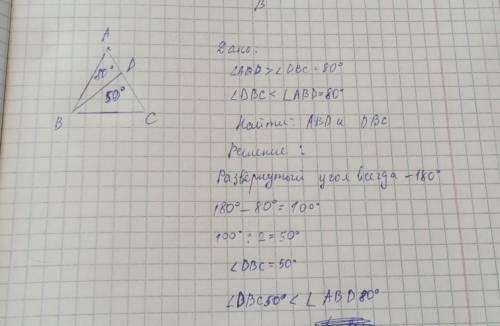 В
A
D
80°
50°
B
C
Дано:
∠ABD > ∠DBC = 80°
∠DBC < ∠ABD = 80°
Найти - ABD и DBC
Решение:
Развёрнутый угол всегда - 180°
180° - 80° = 100°
100° : 2 = 50°
∠DBC = 50°
∠DBC 50° < ∠ABD 80°